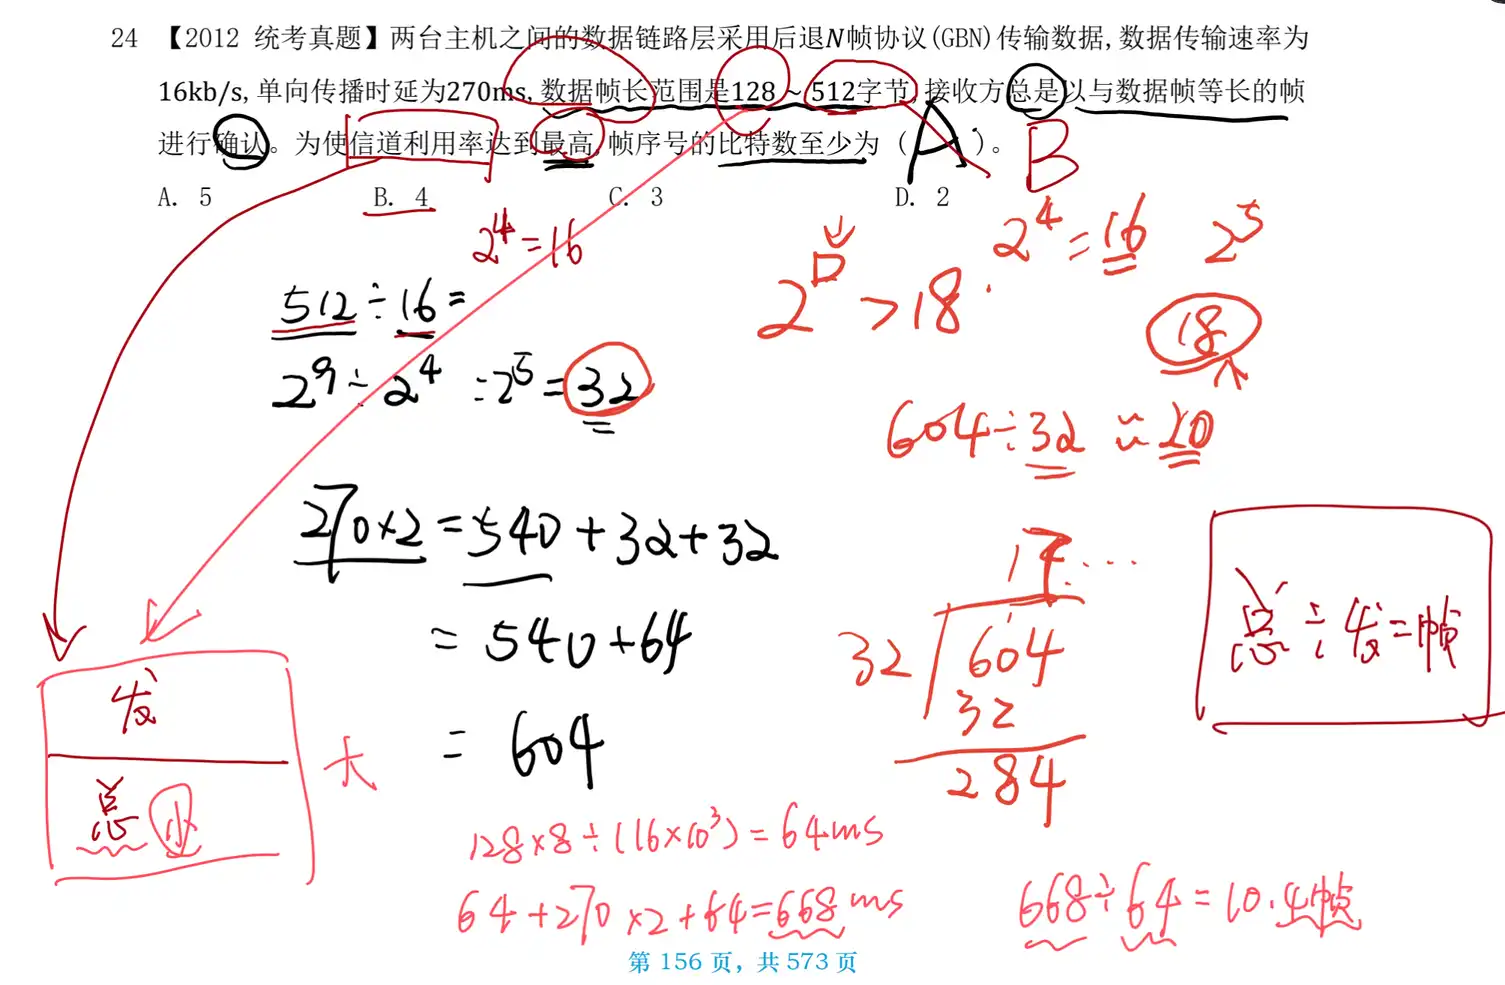 24 【2012 统考真题】两台主机之间的数据链路层采用后退N帧协议(GBN)传输数据,数据传输速率为
16kb/s,单向传播时延为270ms,数据帧长范围是128~512字节,接收方总是以与数据帧等长的帧
进行确认。为使信道利用率达到最高,帧序号的比特数至少为( A )。 B
A. 5 B. 4 C. 3 D. 2
2⁴=16
2⁴=16 2⁵
2 >18
18
512÷16=
2⁹÷2⁴ =2⁵=32
604÷32≈20
270×2=540+32+32
=540+64
=604
17....
32 604
32
284
总÷发=帧
发
总 小
大
128×8÷(16×10³)=64ms
64+270×2+64=668ms
668÷64=10.4帧
第 156 页，共 573 页